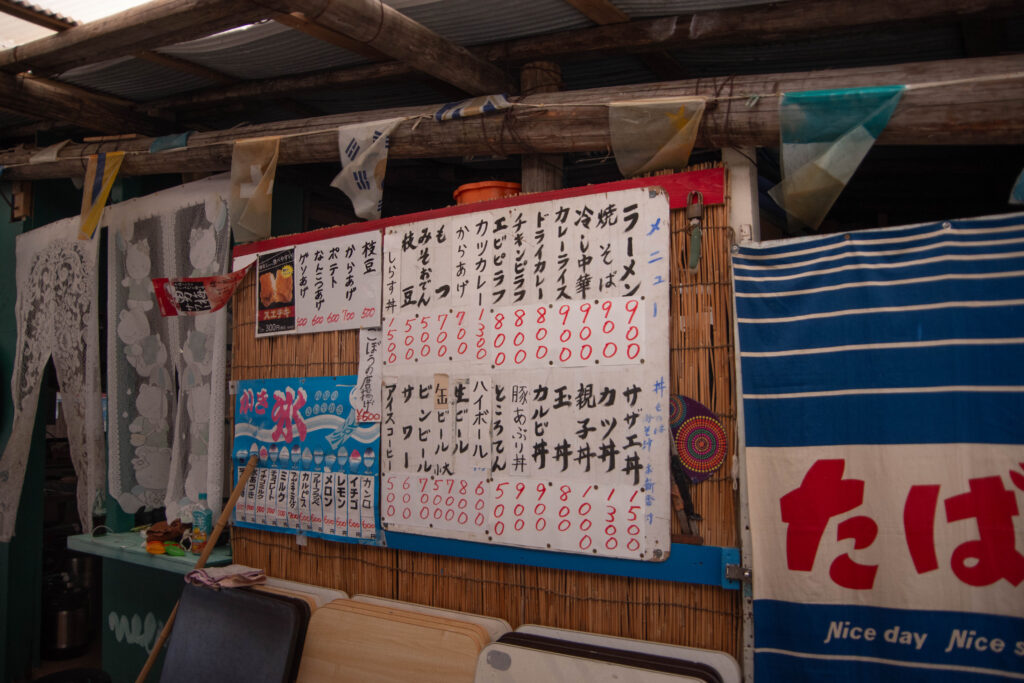 メニュー
ラーメン 900
焼そば 900
冷し中華 900
カレーライス 900
ドライカレー 800
チキンピラフ 800
エビピラフ 800
カツカレー 1300
からあげ 700
もつ 700
みそおでん 500
枝豆 500
しらす丼
サザエ丼 1500
カツ丼 1300
親子丼 1000
玉丼 800
カルビ丼 900
豚あぶり丼 900
ところてん 500
ハイボール 600
生ビール 800
缶ビール 大 小
ビンビール 700
サワー 600
アイスコーヒー 500
枝豆 500
からあげ 700
ポテト 600
なんこつあげ 600
ゲソあげ 500
スエチキ
300円
ごぼうの唐揚げ
¥500
かき氷
カンロ
イチゴ
レモン
メロン
ブルーハワイ
カルピス
ミルク
たば
Nice day Nice s